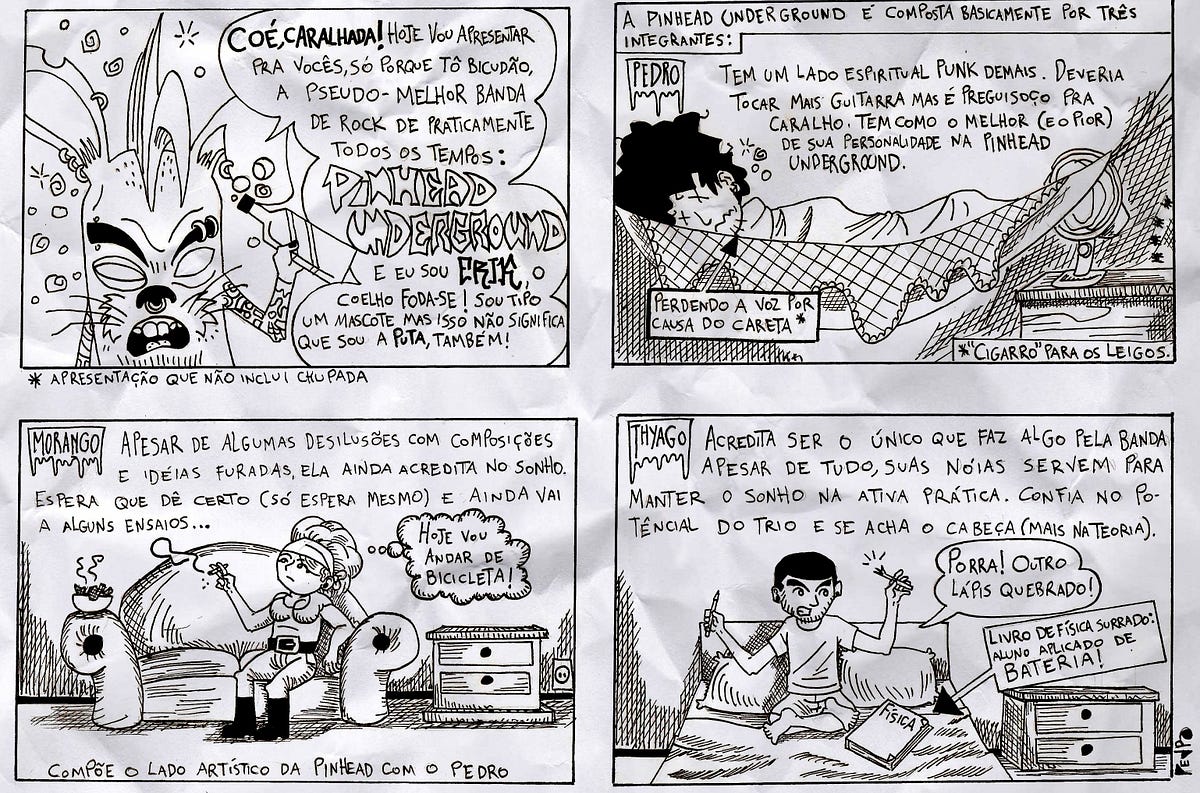 COÉ, CARALHADA! HOJE VOU APRESENTAR
PRA VOCÊS, SÓ PORQUE TÔ BICUDÃO,
A PSEUDO-MELHOR BANDA
DE ROCK DE PRATICAMENTE
TODOS OS TEMPOS:
PINHEAD
UNDERGROUND
E EU SOU ERIK, O
COELHO FODA-SE! SOU TIPO
UM MASCOTE MAS ISSO NÃO SIGNIFICA
QUE SOU A PUTA, TAMBÉM!
* APRESENTAÇÃO QUE NÃO INCLUI CHUPADA
A PINHEAD UNDERGROUND É COMPOSTA BASICAMENTE POR TRÊS
INTEGRANTES:
PEDRO
TEM UM LADO ESPIRITUAL PUNK DEMAIS. DEVERIA
TOCAR MAIS GUITARRA MAS É PREGUISOÇO PRA
CARALHO. TEM COMO O MELHOR (E O PIOR)
DE SUA PERSONALIDADE NA PINHEAD
UNDERGROUND.
PERDENDO A VOZ POR
CAUSA DO CARETA *
* "CIGARRO" PARA OS LEIGOS.
MORANGO
APESAR DE ALGUMAS DESILUSÕES COM COMPOSIÇÕES
E IDÉIAS FURADAS, ELA AINDA ACREDITA NO SONHO.
ESPERA QUE DÊ CERTO (SÓ ESPERA MESMO) E AINDA VAI
A ALGUNS ENSAIOS...
HOJE VOU
ANDAR DE
BICICLETA!
COMPÕE O LADO ARTÍSTICO DA PINHEAD COM O PEDRO
THYAGO
ACREDITA SER O ÚNICO QUE FAZ ALGO PELA BANDA
APESAR DE TUDO, SUAS NÓIAS SERVEM PARA
MANTER O SONHO NA ATIVA PRÁTICA. CONFIA NO PO-
TÊNCIAL DO TRIO E SE ACHA O CABEÇA (MAIS NA TEORIA).
PORRA! OUTRO
LÁPIS QUEBRADO!
LIVRO DE FÍSICA SURRADO:
ALUNO APLICADO DE
BATERIA!
FÍSICA